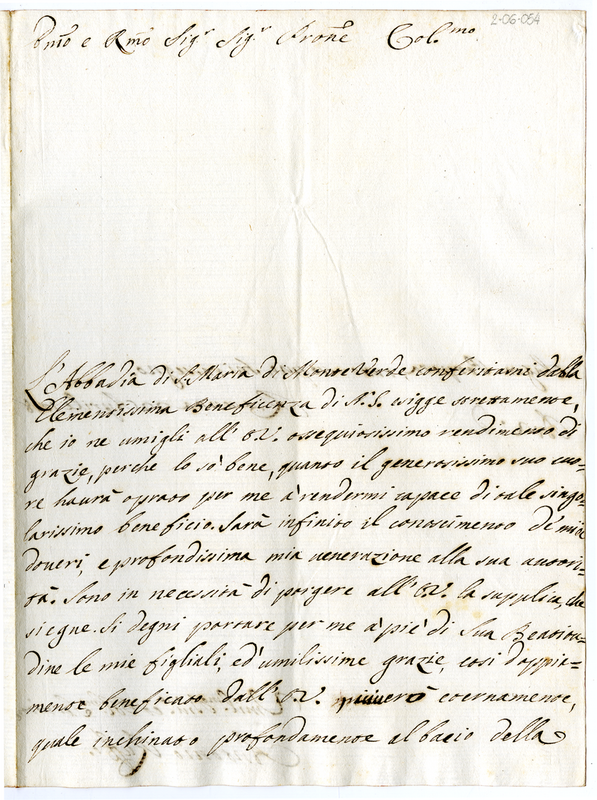 2-06-054
Emo e Rmo Sigr Sigr Prone Colmo
L'Abbadia di S. Maria di Monte Verde conferitami dalla
Clementissima Beneficenza di N. S. esigge strettamente,
che io ne umigli all' E.V. ossequiosissimo rendimento di
grazie, perche lo sò bene, quanto il generosissimo suo cuo-
re haurà oprato per me à rendermi capace di tale singo-
larissimo beneficio. Sarà infinito il conoscimento de' miei
doveri, e profondissima mia venerazione alla sua autori-
tà. Sono in necessità di porgere all' E.V. la supplica, che
siegue. Si degni portare per me à piè di Sua Beatitu-
dine le mie figliali, ed' umilissime grazie, così doppia-
mente beneficato dall' E.V. viverò eternamente,
quale inchinato profondamente al bacio della